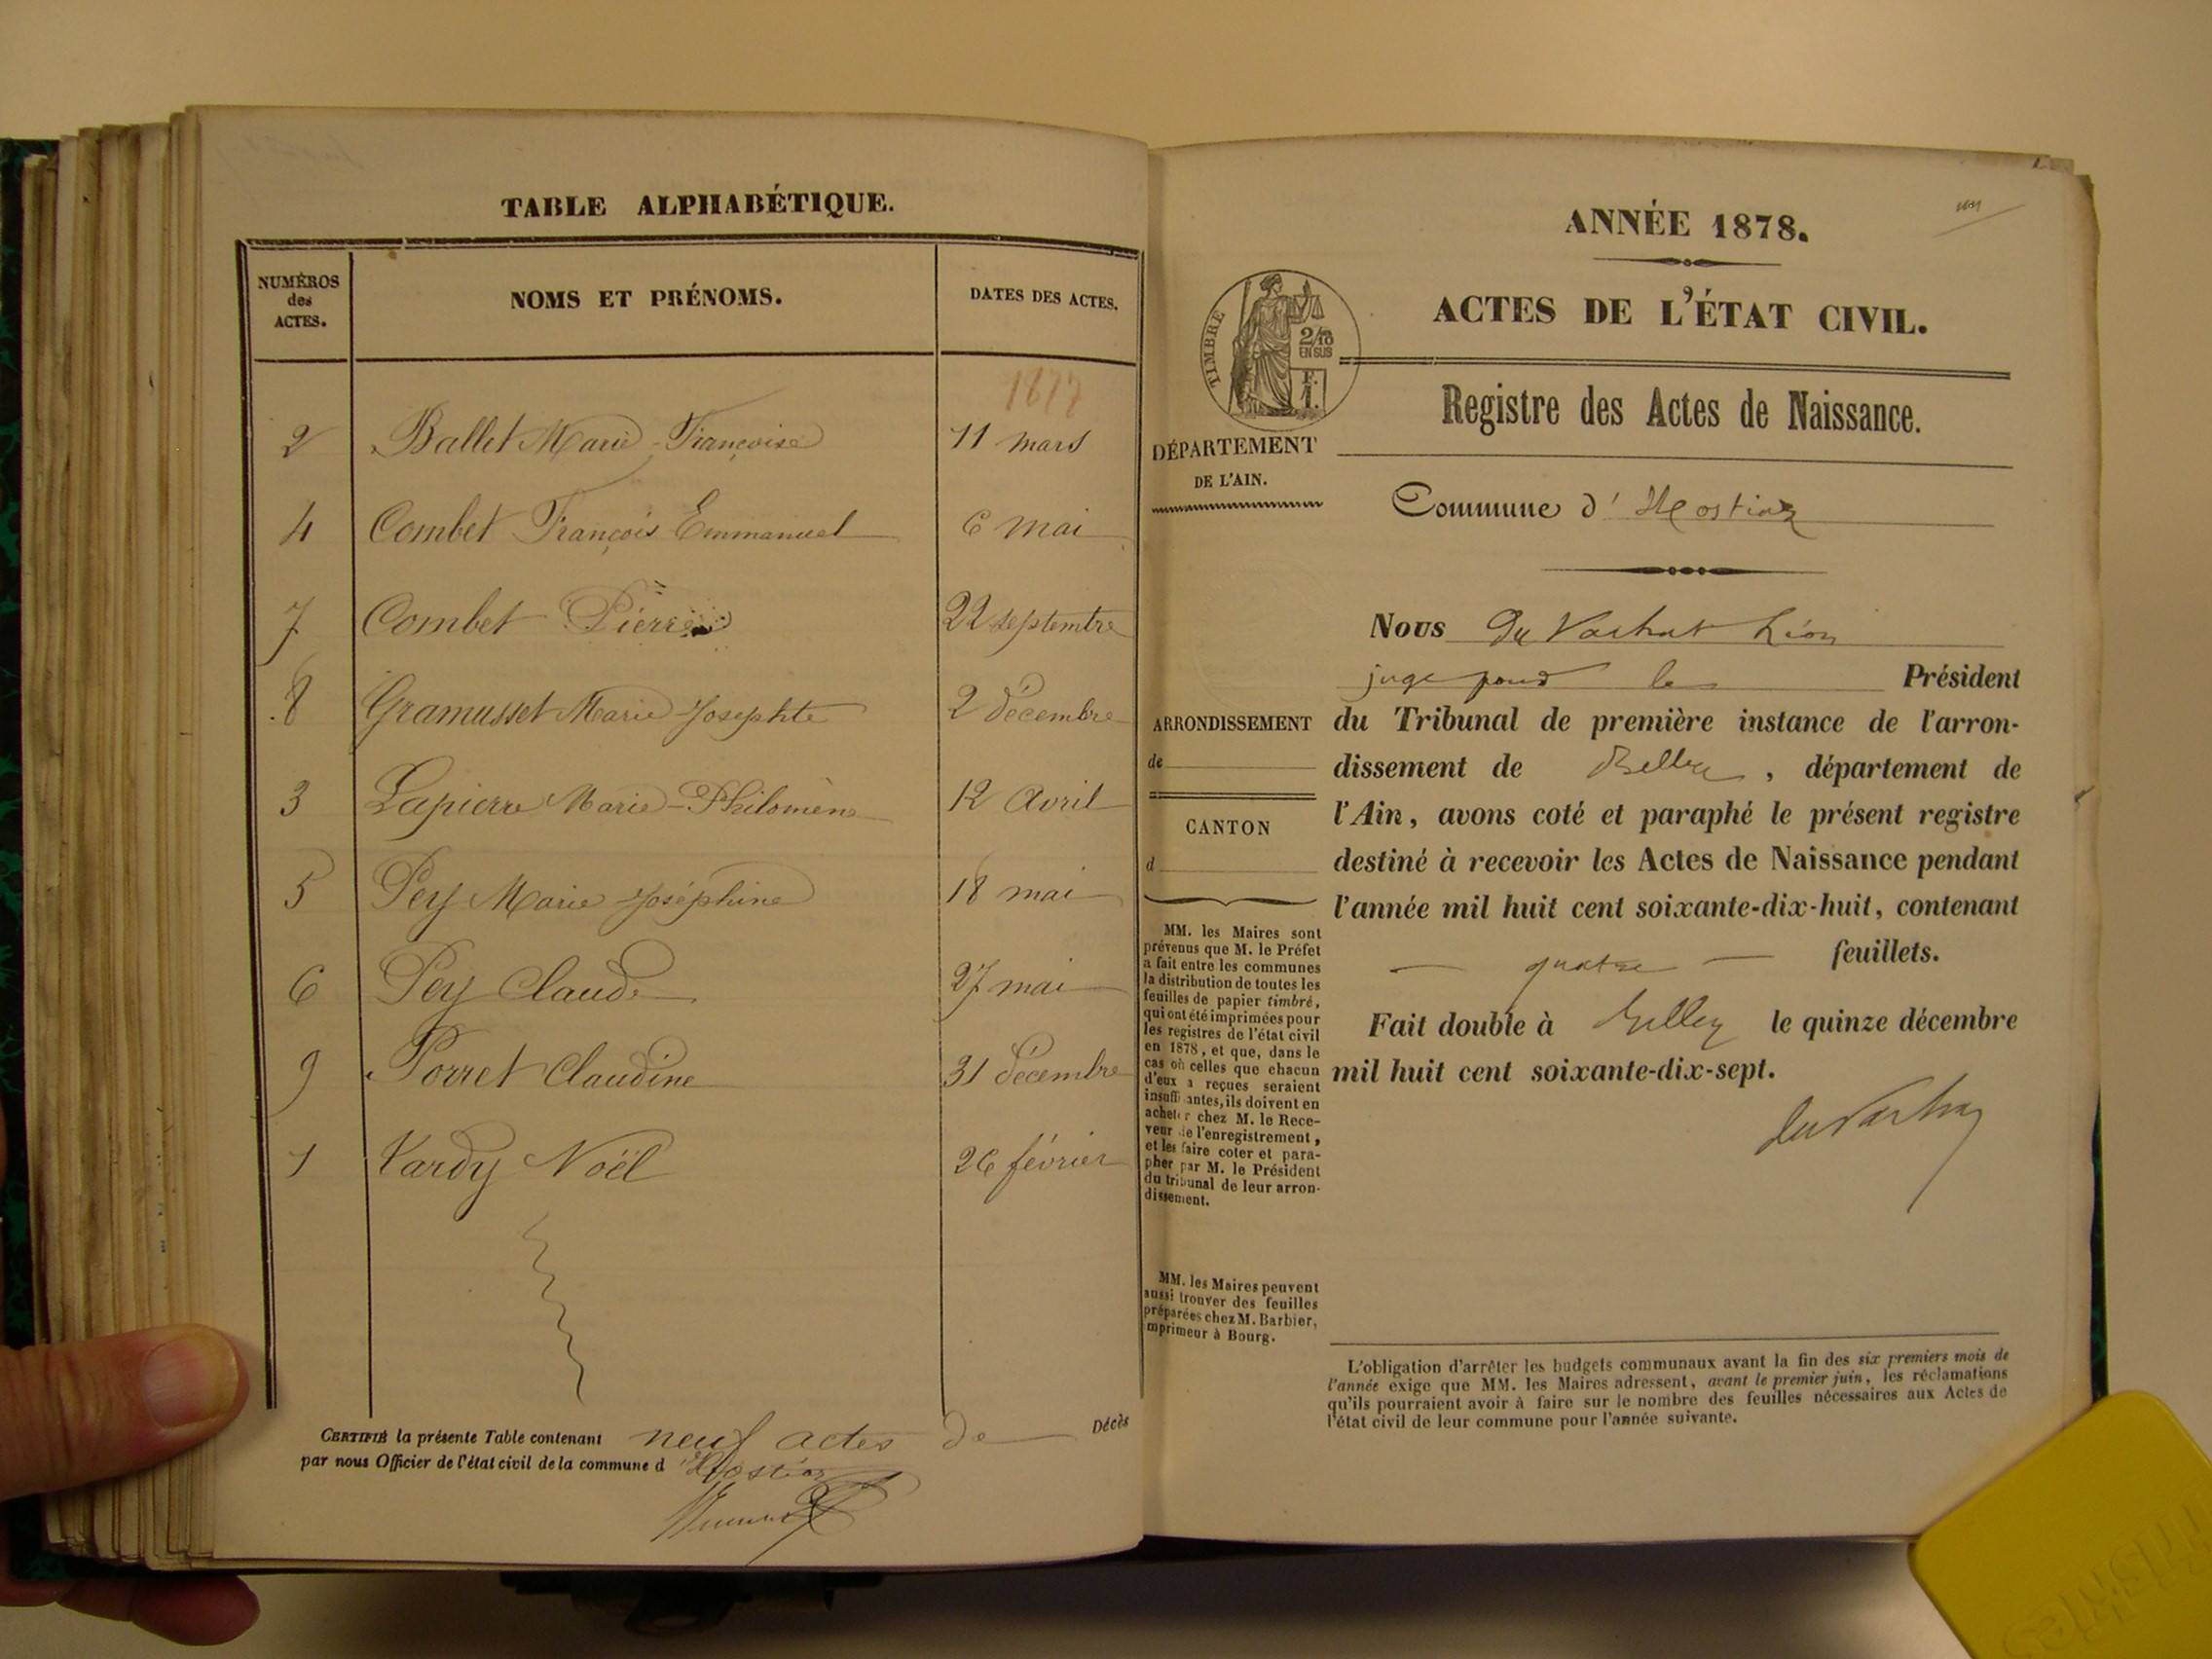 TABLE ALPHABÉTIQUE.
NUMÉROS des ACTES.
NOMS ET PRÉNOMS.
DATES DES ACTES.
1877
2 Ballet Marie-Françoise 11 mars
4 Combet François Emmanuel 6 mai
7 Combet Pierre 22 septembre
8 Gramusset Marie Josephte 2 décembre
3 Lapierre Marie-Philomène 12 Avril
5 Pey Marie Joséphine 18 mai
6 Pey Claude 27 mai
9 Porret Claudine 31 décembre
1 Vardy Noël 26 février
CERTIFIÉ la présente Table contenant neuf actes de Décès
par nous Officier de l'état civil de la commune d'Hostiaz
ANNÉE 1878.
ACTES DE L'ÉTAT CIVIL.
TIMBRE
2/10
EN SUS
F.
1.
Registre des Actes de Naissance.
DÉPARTEMENT
DE L'AIN.
Commune d'Hostiaz
Nous Du Vachat Léon
juge pour le Président
du Tribunal de première instance de l'arron-
dissement de Belley, département de
l'Ain, avons coté et paraphé le présent registre
destiné à recevoir les Actes de Naissance pendant
l'année mil huit cent soixante-dix-huit, contenant
— quatre — feuillets.
Fait double à Belley le quinze décembre
mil huit cent soixante-dix-sept.
du Vachat
ARRONDISSEMENT
de
CANTON
d
MM. les Maires sont
prévenus que M. le Préfet
a fait entre les communes
la distribution de toutes les
feuilles de papier timbré,
qui ont été imprimées pour
les registres de l'état civil
en 1878, et que, dans le
cas où celles que chacun
d'eux a reçues seraient
insuffisantes, ils doivent en
acheter chez M. le Rece-
veur de l'enregistrement,
et les faire coter et para-
pher par M. le Président
du tribunal de leur arron-
dissement.
MM. les Maires peuvent
aussi trouver des feuilles
préparées chez M. Barbier,
imprimeur à Bourg.
L'obligation d'arrêter les budgets communaux avant la fin des six premiers mois de
l'année exige que MM. les Maires adressent, avant le premier juin, les réclamations
qu'ils pourraient avoir à faire sur le nombre des feuilles nécessaires aux Actes de
l'état civil de leur commune pour l'année suivante.